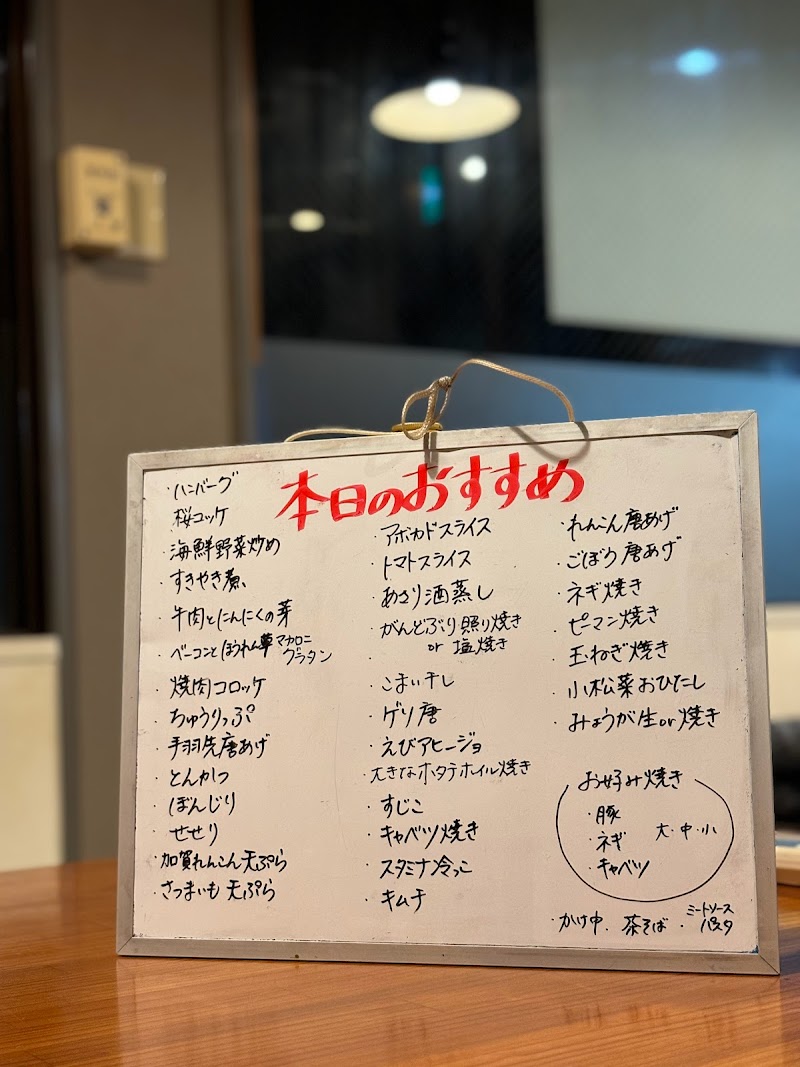 本日のおすすめ
・ハンバーグ
桜コッケ
・海鮮野菜炒め
・すきやき煮
・牛肉とにんにくの芽
・ベーコンとほうれん草マカロニ
グラタン
・焼肉コロッケ
・ちゅうりっぷ
・手羽先唐あげ
・とんかつ
・ぼんじり
・せせり
・加賀れんこん天ぷら
・さつまいも天ぷら
・アボカドスライス
・トマトスライス
・あさり酒蒸し
・がんどぶり照り焼き
or 塩焼き
・こまい干し
・ゲソ唐
・えびアヒージョ
・大きなホタテホイル焼き
・すじこ
・キャベツ焼き
・スタミナ冷っこ
・キムチ
・れんこん唐あげ
・ごぼう唐あげ
・ネギ焼き
・ピーマン焼き
・玉ねぎ焼き
・小松菜おひたし
・みょうが生or焼き
お好み焼き
・豚
・ネギ 大・中・小
・キャベツ
・かけ中・茶そば・ミートソース
パスタ